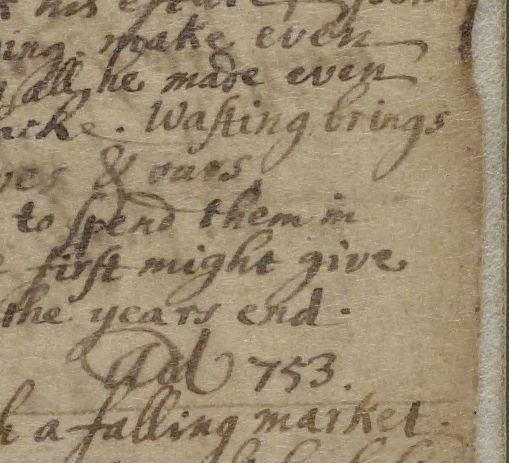 his estate
make even
all he made even
. Wasting brings
& ours
to spend them in
first might give
the years end.
Ad 753.
a falling market.